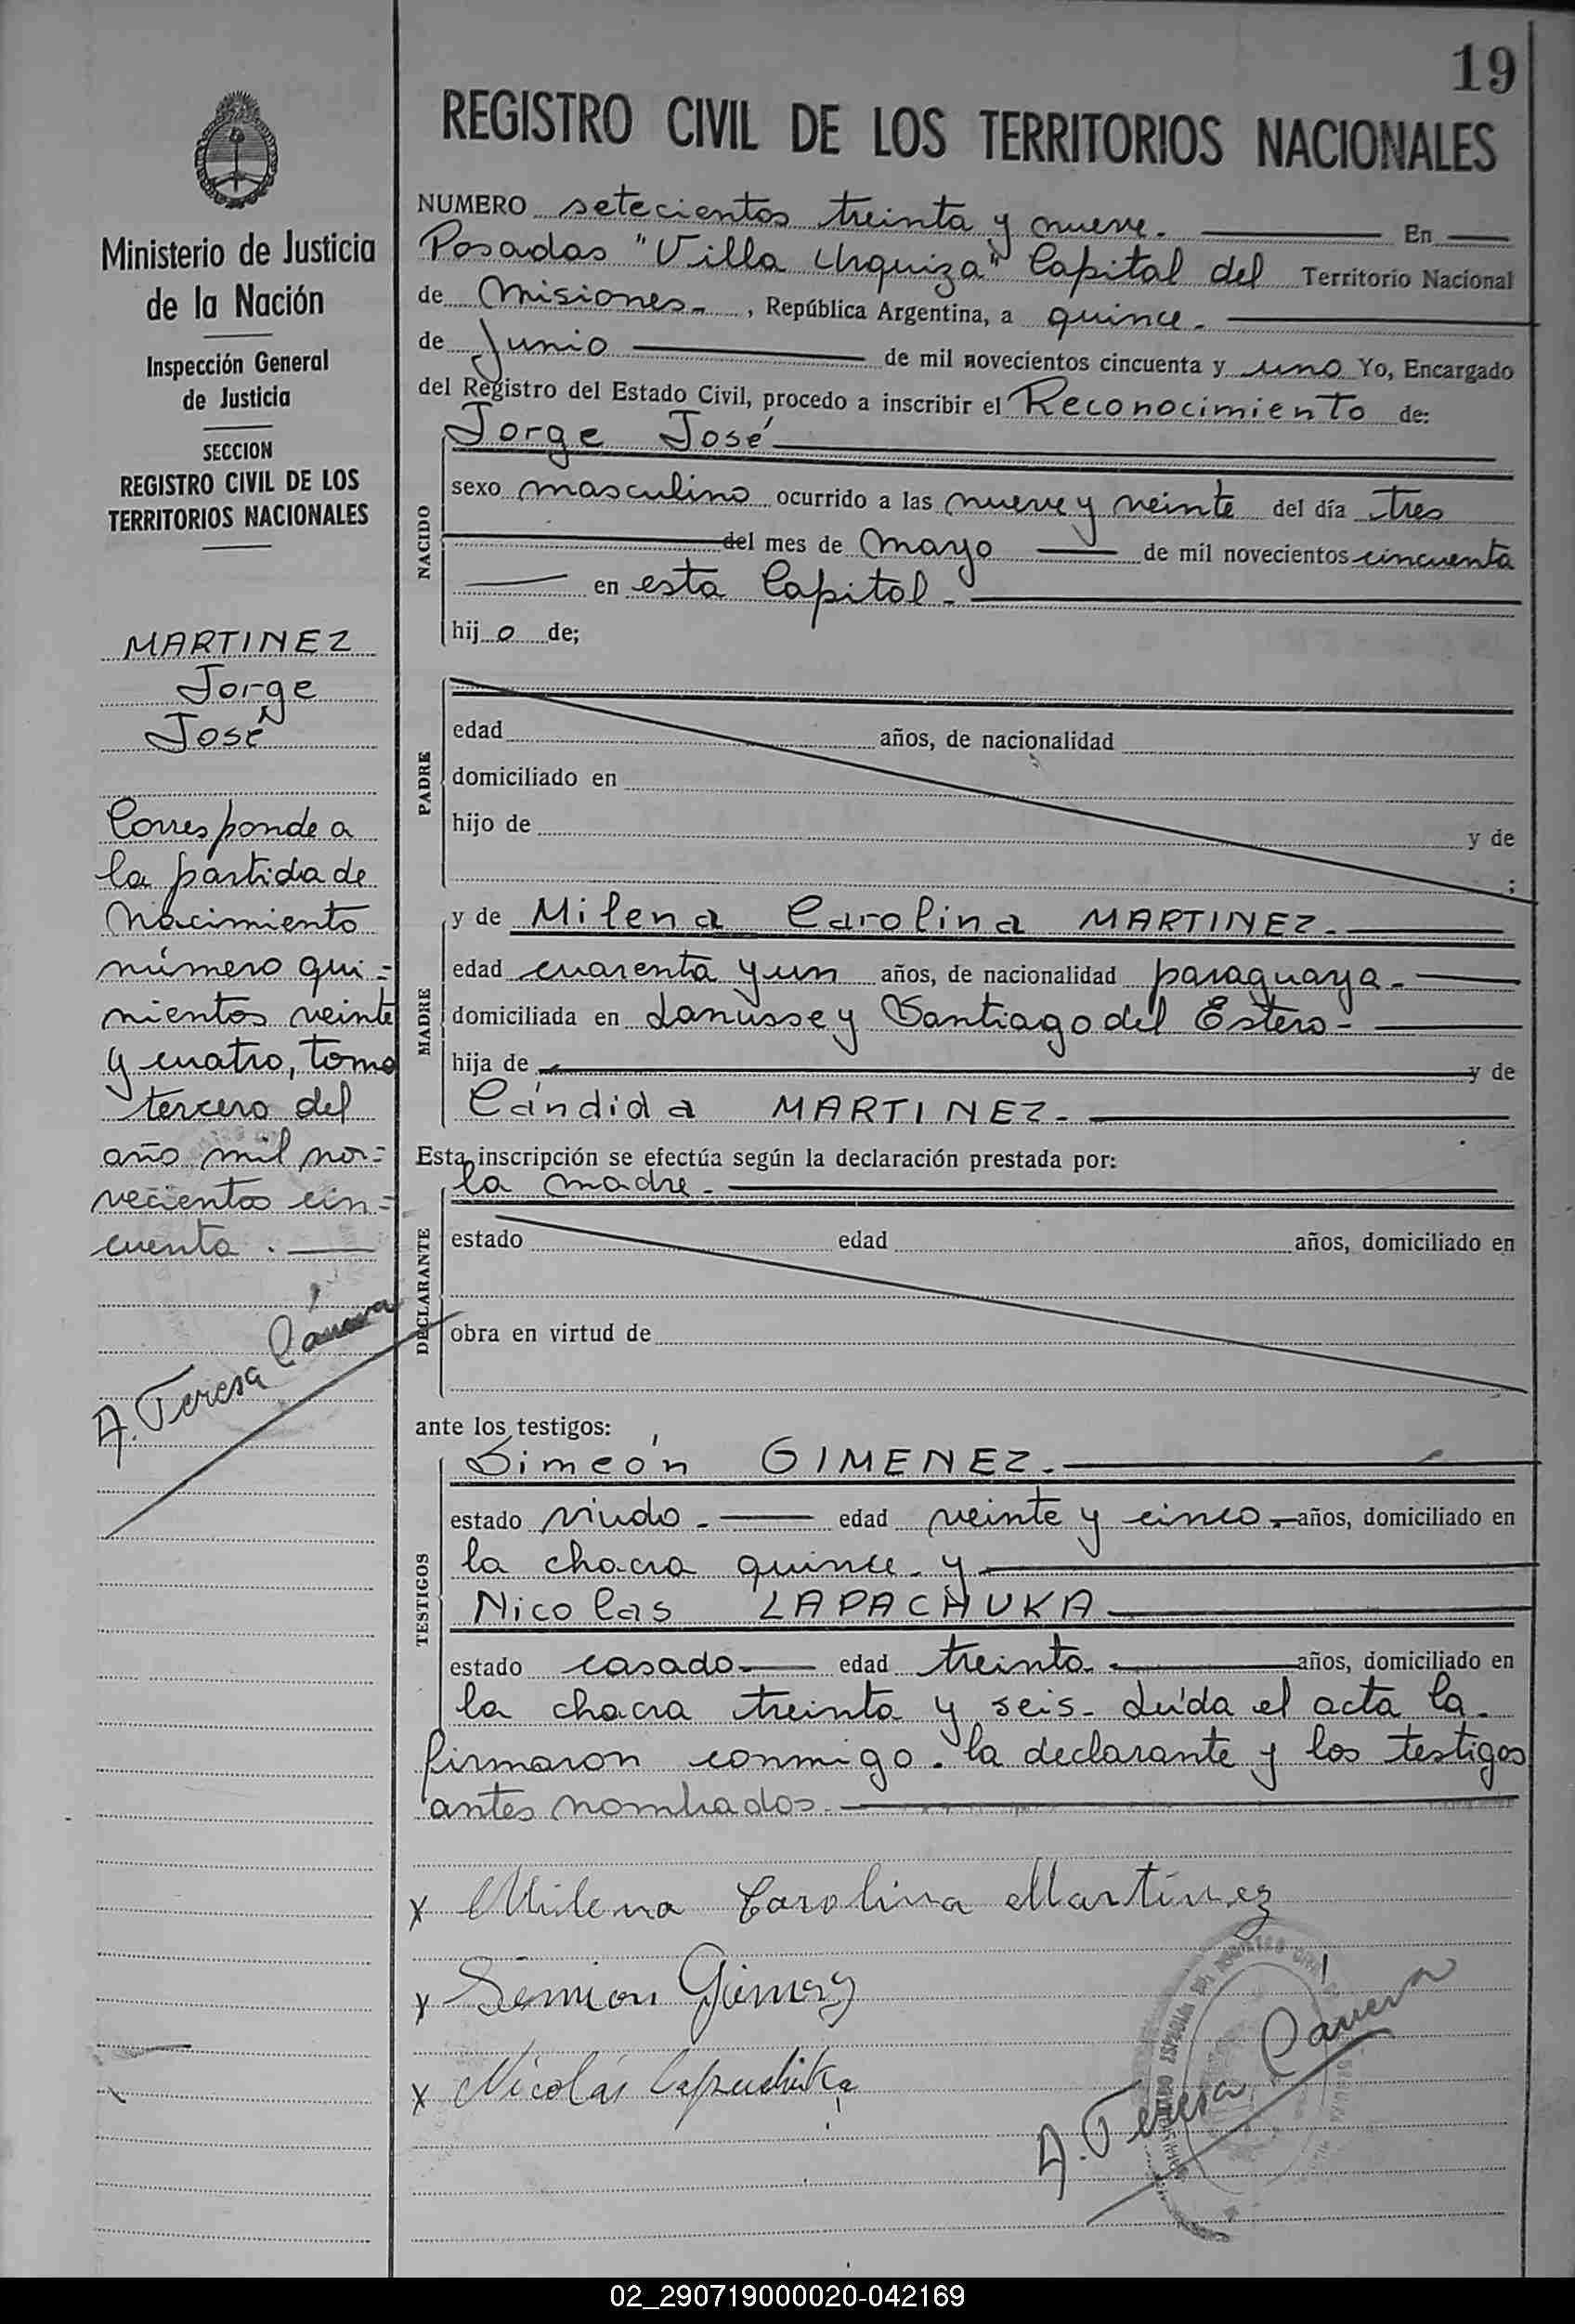 19
REGISTRO CIVIL DE LOS TERRITORIOS NACIONALES
Ministerio de Justicia
de la Nación
Inspección General
de Justicia
SECCION
REGISTRO CIVIL DE LOS
TERRITORIOS NACIONALES
MARTINEZ
Jorge
José
Corresponde a
la partida de
Nacimiento
número qui=
nientos veinte
y cuatro, tomo
tercero del
año mil no=
vecientos cin=
cuenta.
A. Teresa
NUMERO setecientos treinta y nueve. En
Posadas "Villa Urquiza" Capital del Territorio Nacional
de Misiones. , República Argentina, a quince.
de Junio de mil novecientos cincuenta y uno Yo, Encargado
del Registro del Estado Civil, procedo a inscribir el Reconocimiento de:
Jorge José
NACIDO
sexo masculino ocurrido a las nueve y veinte del día tres
del mes de mayo de mil novecientos cincuenta
en esta Capital.
hij o de;
PADRE
edad años, de nacionalidad
domiciliado en
hijo de y de
;
MADRE
y de Milena Carolina MARTINEZ.
edad cuarenta y un años, de nacionalidad paraguaya.
domiciliada en Lanusse y Santiago del Estero-
hija de y de
Cándida MARTINEZ.
Esta inscripción se efectúa según la declaración prestada por:
la madre.
DECLARANTE
estado edad años, domiciliado en
obra en virtud de
ante los testigos:
TESTIGOS
Simeón GIMENEZ.
estado viudo. edad veinte y cinco. años, domiciliado en
la chacra quince. y
Nicolas LAPACHUKA
estado casado. edad treinta. años, domiciliado en
la chacra treinta y seis. Leída el acta la
firmaron conmigo. la declarante y los testigos
antes nombrados.
x Milena Carolina Martínez
x Simion
x Nicolás
A. Teresa
02_290719000020-042169